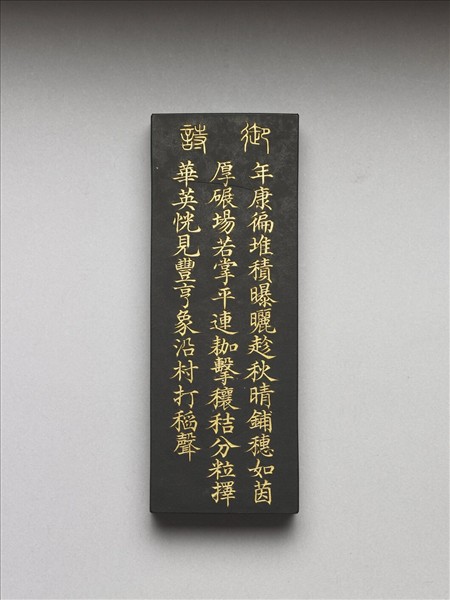 御詩
年康徧堆積曝曬趁秋晴鋪穗如茵
厚碾場若掌平連耞擊穰秸分粒擇
華英恍見豐亨象沿村打稻聲